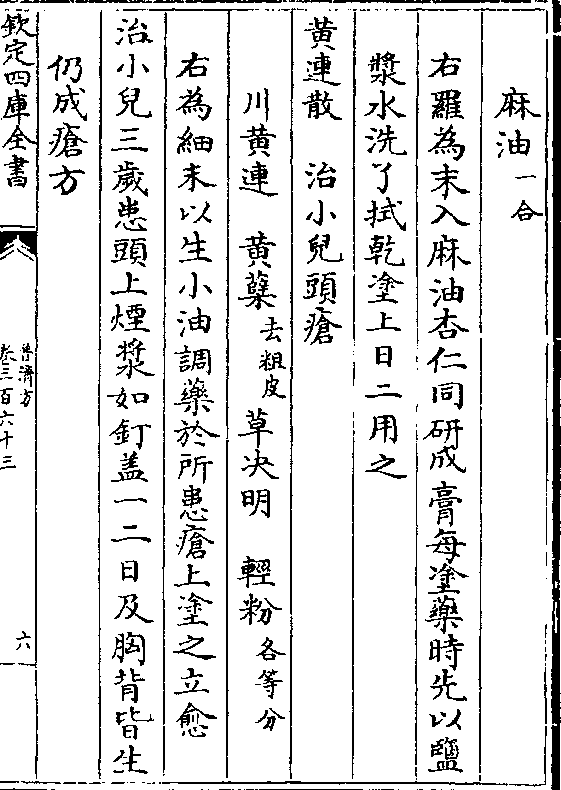 麻油一合
右羅為末入麻油杏仁同研成膏每塗藥時先以鹽
漿水洗了拭乾塗上日二用之
黄連散　治小兒頭瘡
川黄連　黄蘖去粗皮　草决明　輕粉各等分
右為細末以生小油調藥於所患瘡上塗之立愈
治小兒三歲患頭上煙漿如釘盖一二日及胸背皆生
仍成瘡方
欽定四庫全書
普濟方
卷三百六十三
六